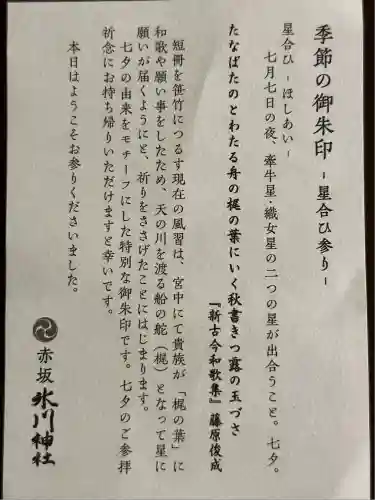 季節の御朱印 - 星合ひ参り -
星合ひ - ほしあい -
七月七日の夜、牽牛星・織女星の二つの星が出合うこと。七夕。
たなばたのとわたる舟の梶の葉にいく秋書きつ露の玉づさ
『新古今和歌集』藤原俊成
短冊を笹竹につるす現在の風習は、宮中にて貴族が「梶の葉」に
和歌や願い事をしたため、天の川を渡る船の舵（梶）となって星に
願いが届くようにと、祈りをささげたことにはじまります。
七夕の由来をモチーフにした特別な御朱印です。七夕のご参拝
祈念にお持ち帰りいただけますと幸いです。
本日はようこそお参りくださいました。
赤坂氷川神社